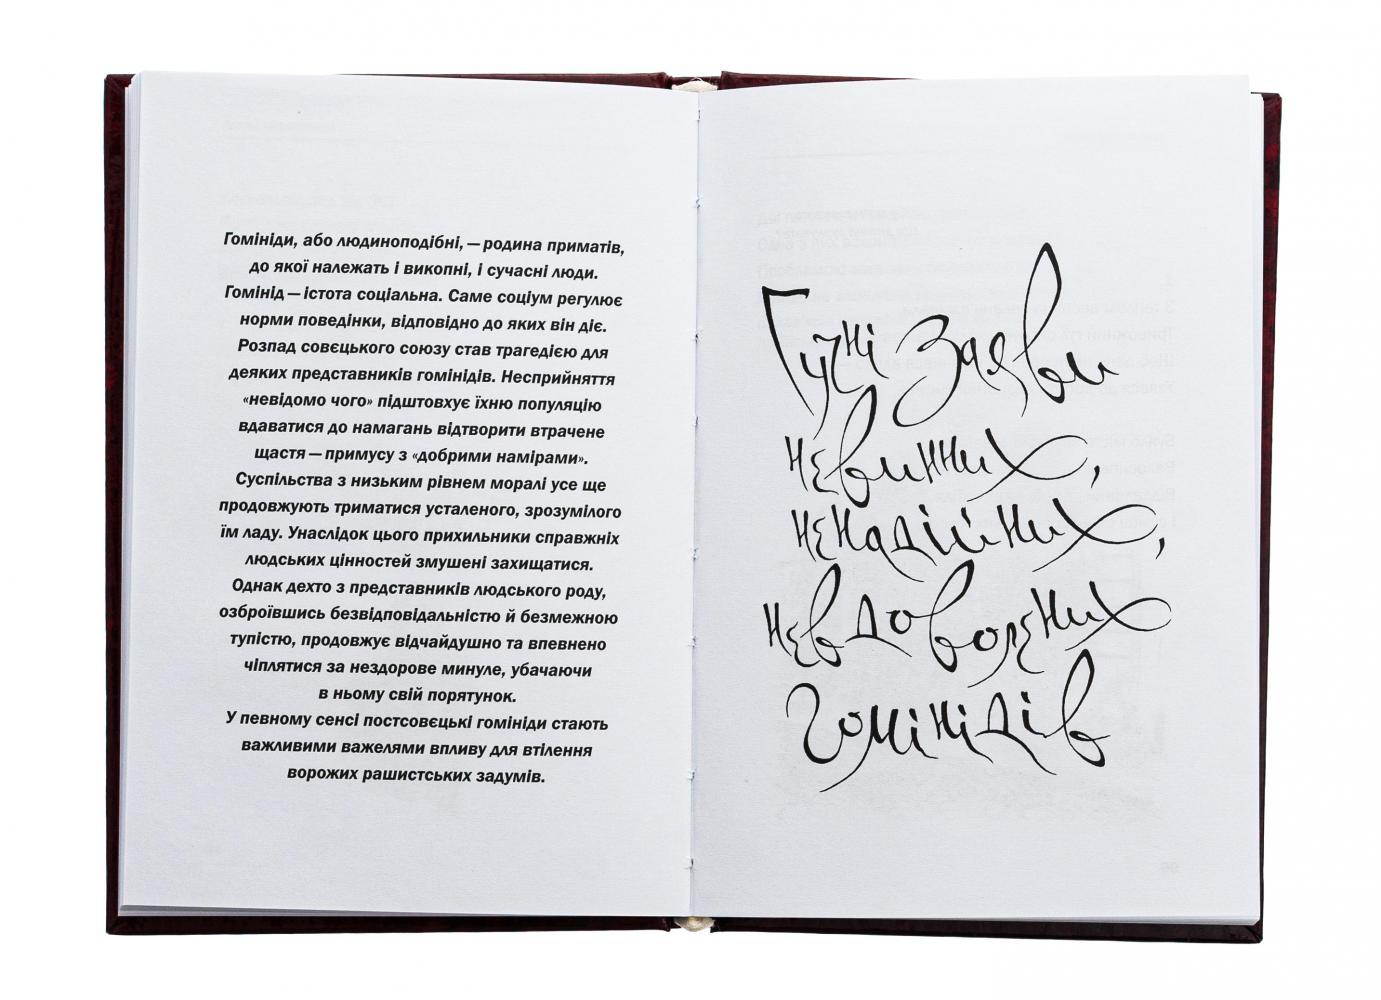 Гомініди, або людиноподібні, — родина приматів,
до якої належать і викопні, і сучасні люди.
Гомінід — істота соціальна. Саме соціум регулює
норми поведінки, відповідно до яких він діє.
Розпад совєцького союзу став трагедією для
деяких представників гомінідів. Несприйняття
«невідомо чого» підштовхує їхню популяцію
вдаватися до намагань відтворити втрачене
щастя — примусу з «добрими намірами».
Суспільства з низьким рівнем моралі усе ще
продовжують триматися усталеного, зрозумілого
їм ладу. Унаслідок цього прихильники справжніх
людських цінностей змушені захищатися.
Однак дехто з представників людського роду,
озброївшись безвідповідальністю й безмежною
тупістю, продовжує відчайдушно та впевнено
чіплятися за нездорове минуле, убачаючи
в ньому свій порятунок.
У певному сенсі постсовєцькі гомініди стають
важливими важелями впливу для втілення
ворожих рашистських задумів.
Гучні заяви
невинних,
ненадійних,
невдоволених
гомінідів